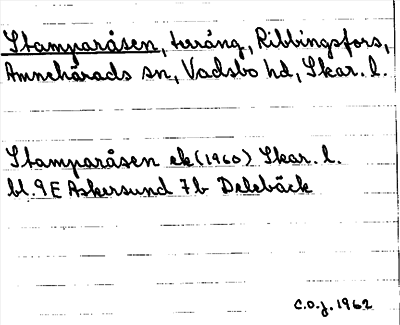 Stamparåsen, terräng, Ribbingsfors,
Amnehärads sn, Vadsbo hd, Skar. l.
Stamparåsen ek (1960) Skar. l.
bl. 9E Askersund 7b Delebäck
C.O.J. 1962